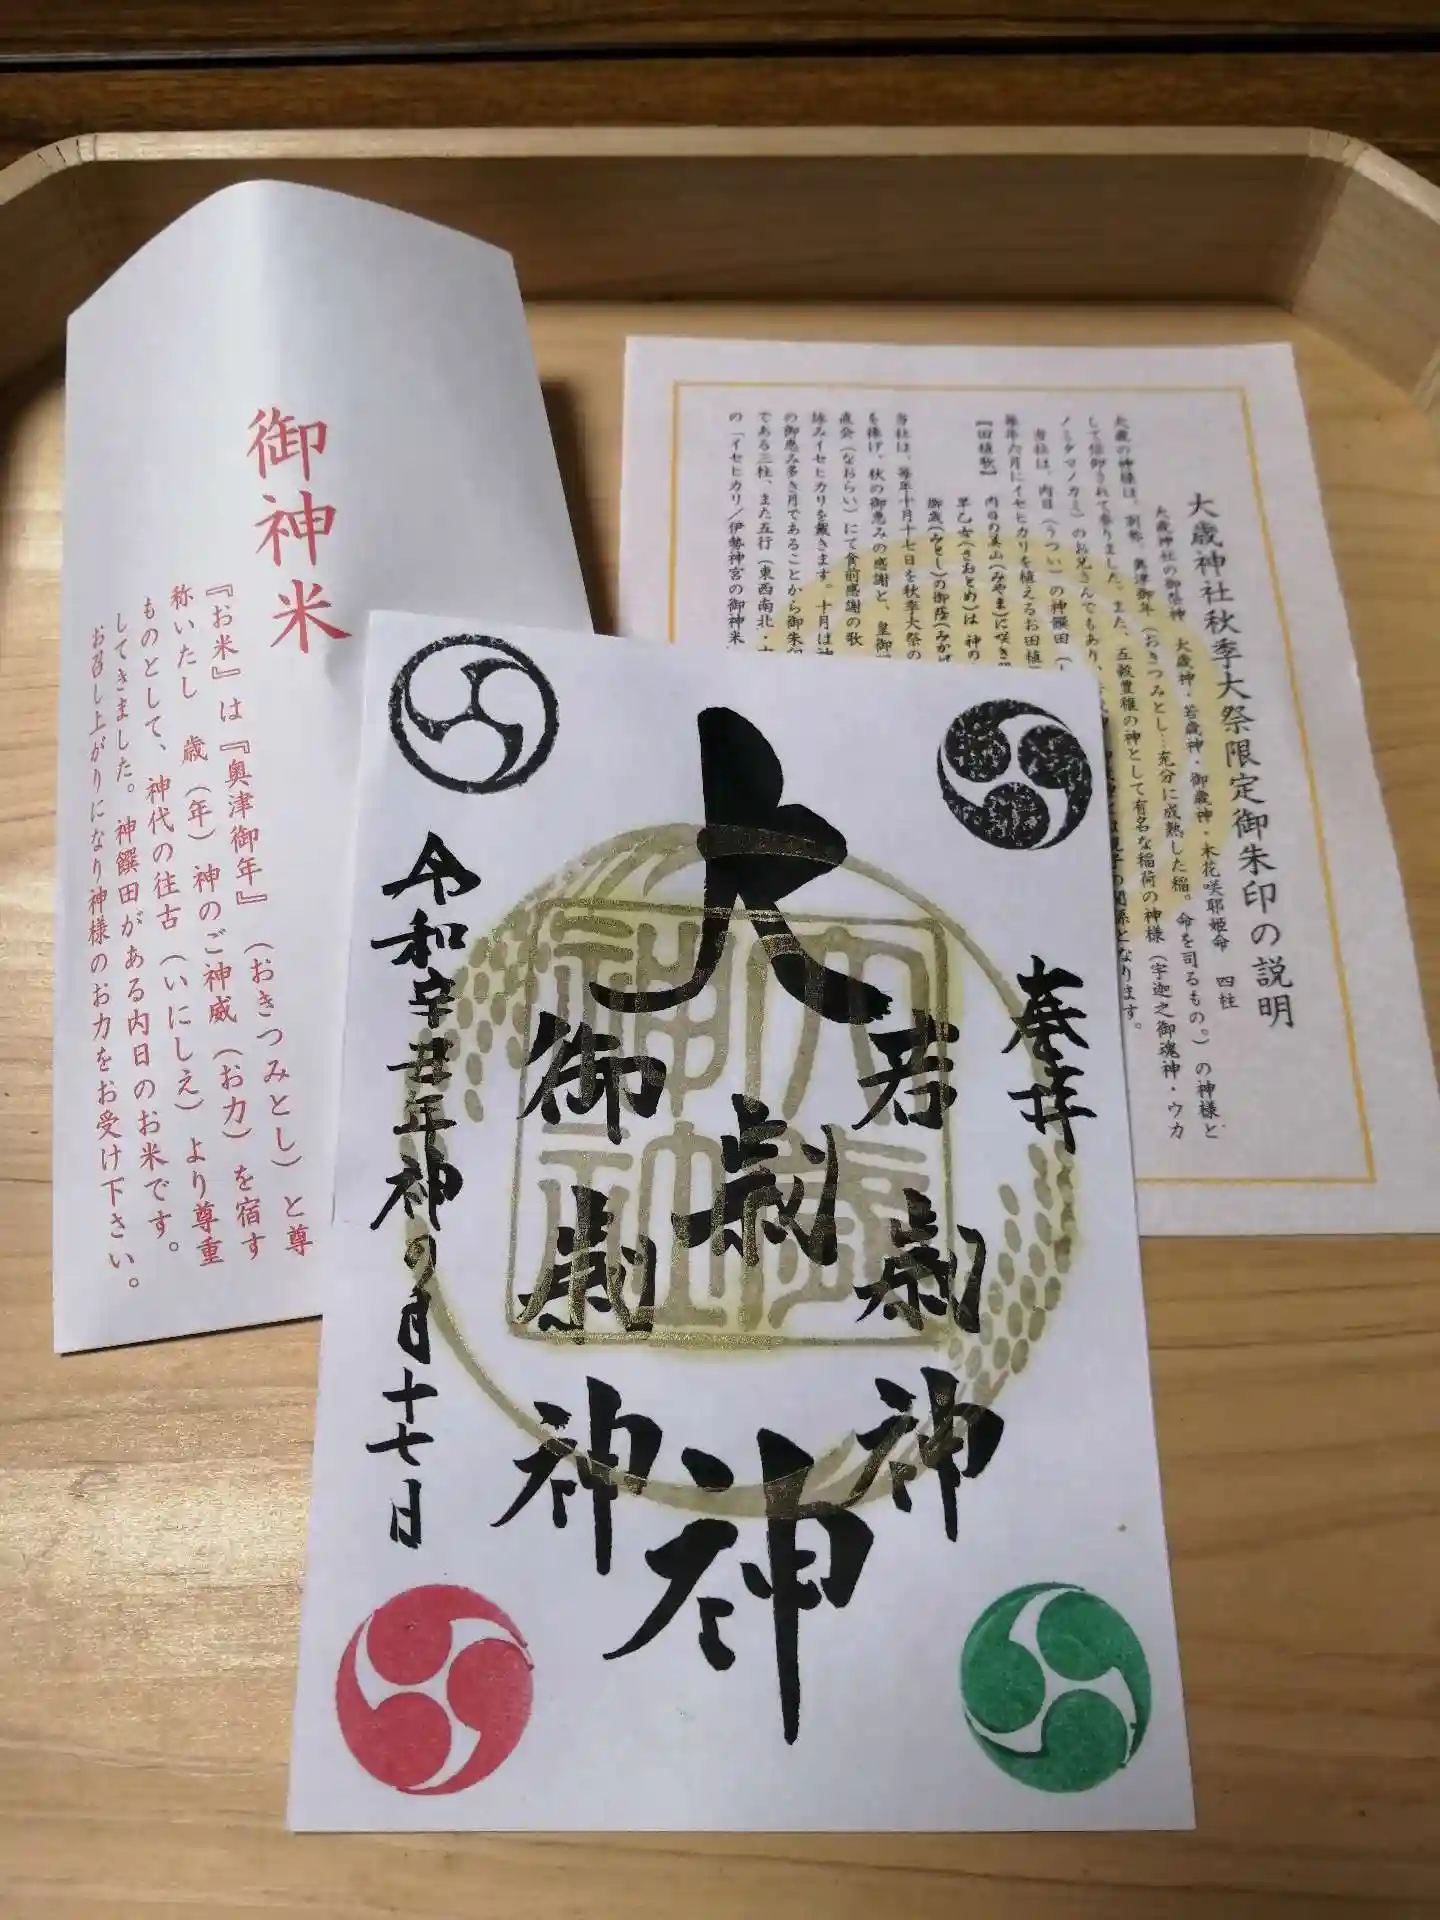 御神米
『お米』は『奥津御年』（おきつみとし）と尊
称いたし　歳（年）神のご神威（お力）を宿す
ものとして、神代の往古（いにしえ）より尊重
してきました。神饌田がある内日のお米です。
お召し上がりになり神様のお力をお受け下さい。
大歳神社秋季大祭限定御朱印の説明
大歳神社の御祭神　大歳神・若歳神・御歳神・木花咲耶姫命　四柱
大歳の神様は、別称、奥津御年（おきつみとし…充分に成熟した稲。命を司るもの。）の神様と
して信仰されて参りました。また、五穀豊穣の神として有名な稲荷の神様（宇迦之御魂神・ウカ
ノミタマノカミ）のお兄さんでもあり、
の関係となります。
当社は、内日（うつい）の神饌田
毎年六月にイセヒカリを植えるお田植
【田植歌】
内日の美山（みやま）に咲き
早乙女（さおとめ）は　神の
御歳（みとし）の御蔭（みかげ
当社は、毎年十月十七日を秋季大祭の
を捧げ、秋の御恵みの感謝と、皇御
直会（なおらい）にて食前感謝の歌
詠みイセヒカリを戴きます。十月は神
の御恵み多き月であることから御朱印
である三柱、また五行（東西南北・
の「イセヒカリ／伊勢神宮の御神米
奉拝
若歳神
大歳神
御歳神
令和辛丑年神の月十七日
大歳
神社